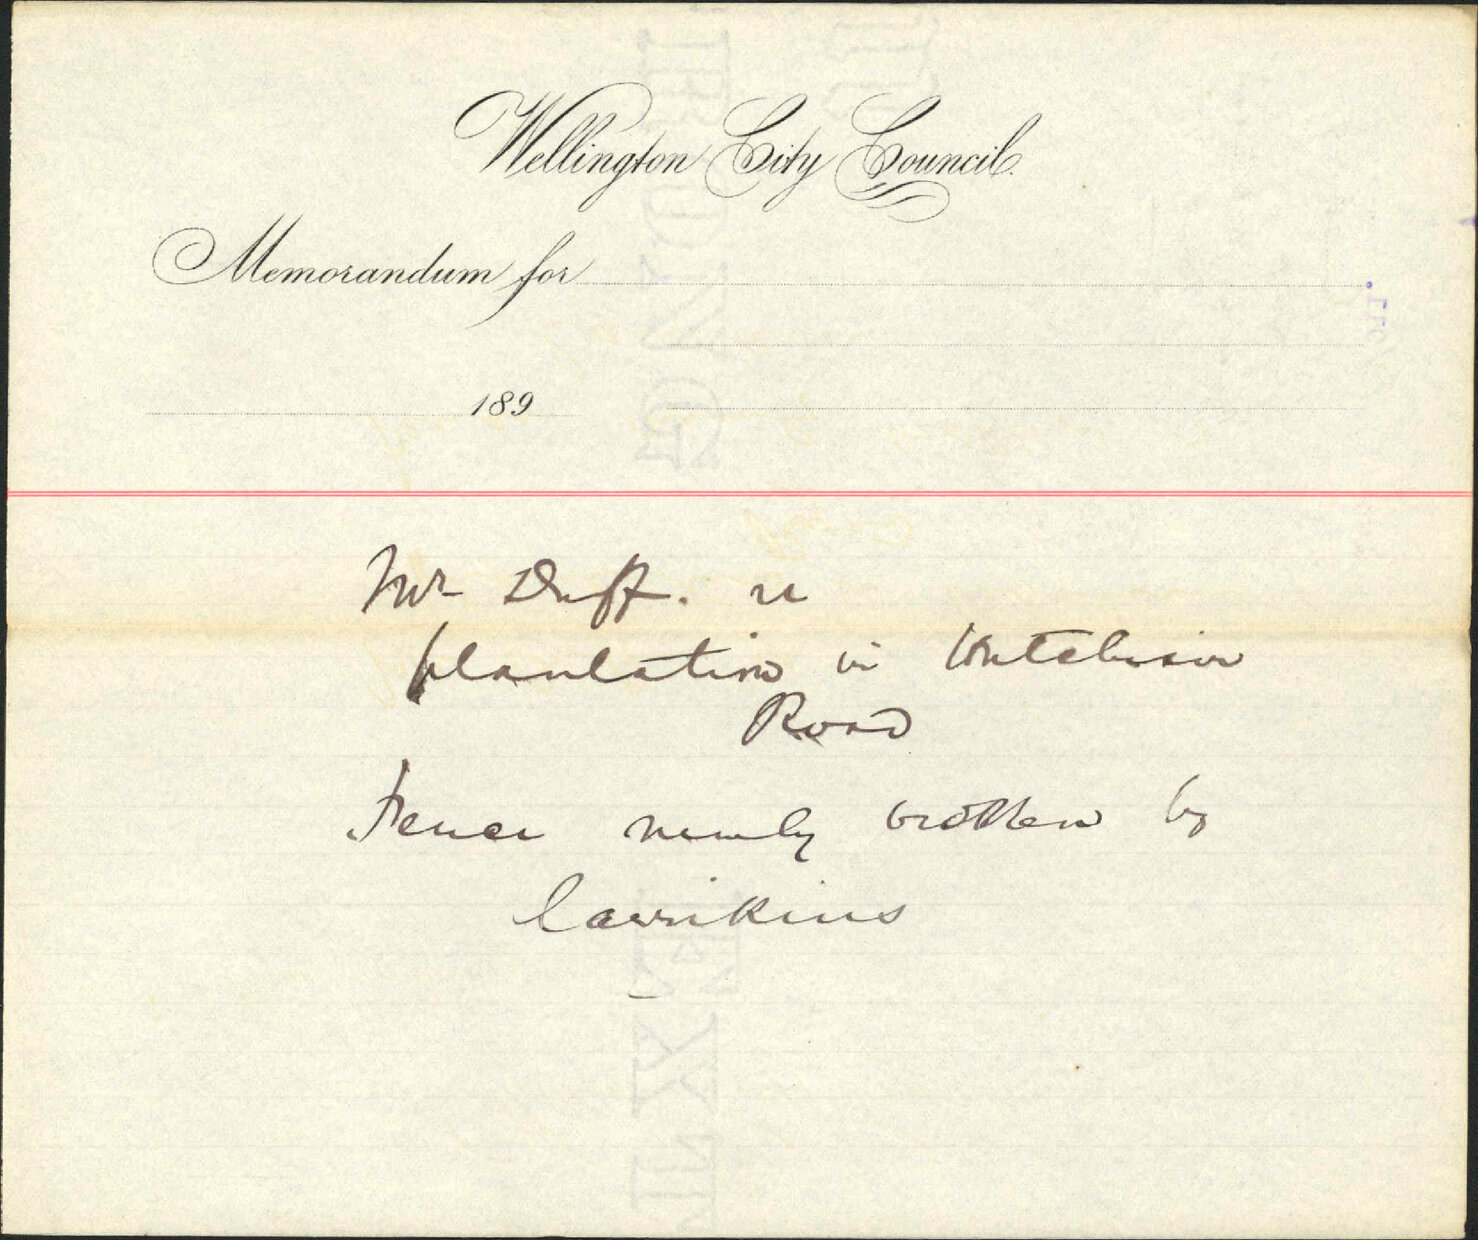 Wellington City Council.
Memorandum for
189
Mr Duff. re
plantation in Hutchison
Road
Fence newly broken by
larrikins